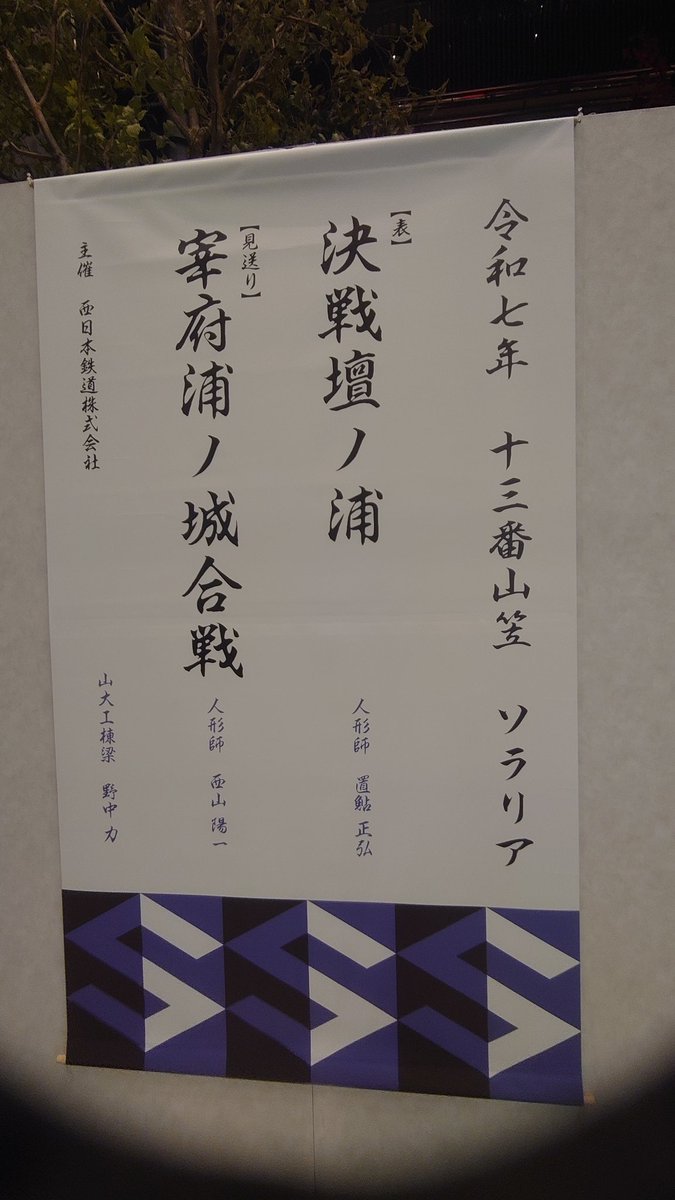 令和七年 十三番山笠 ソラリア
【表】
決戦壇ノ浦
人形師 置鮎 正弘
【見送り】
宰府浦ノ城合戦
人形師 西山 陽一
主催 西日本鉄道株式会社
山大工棟梁 野中 力